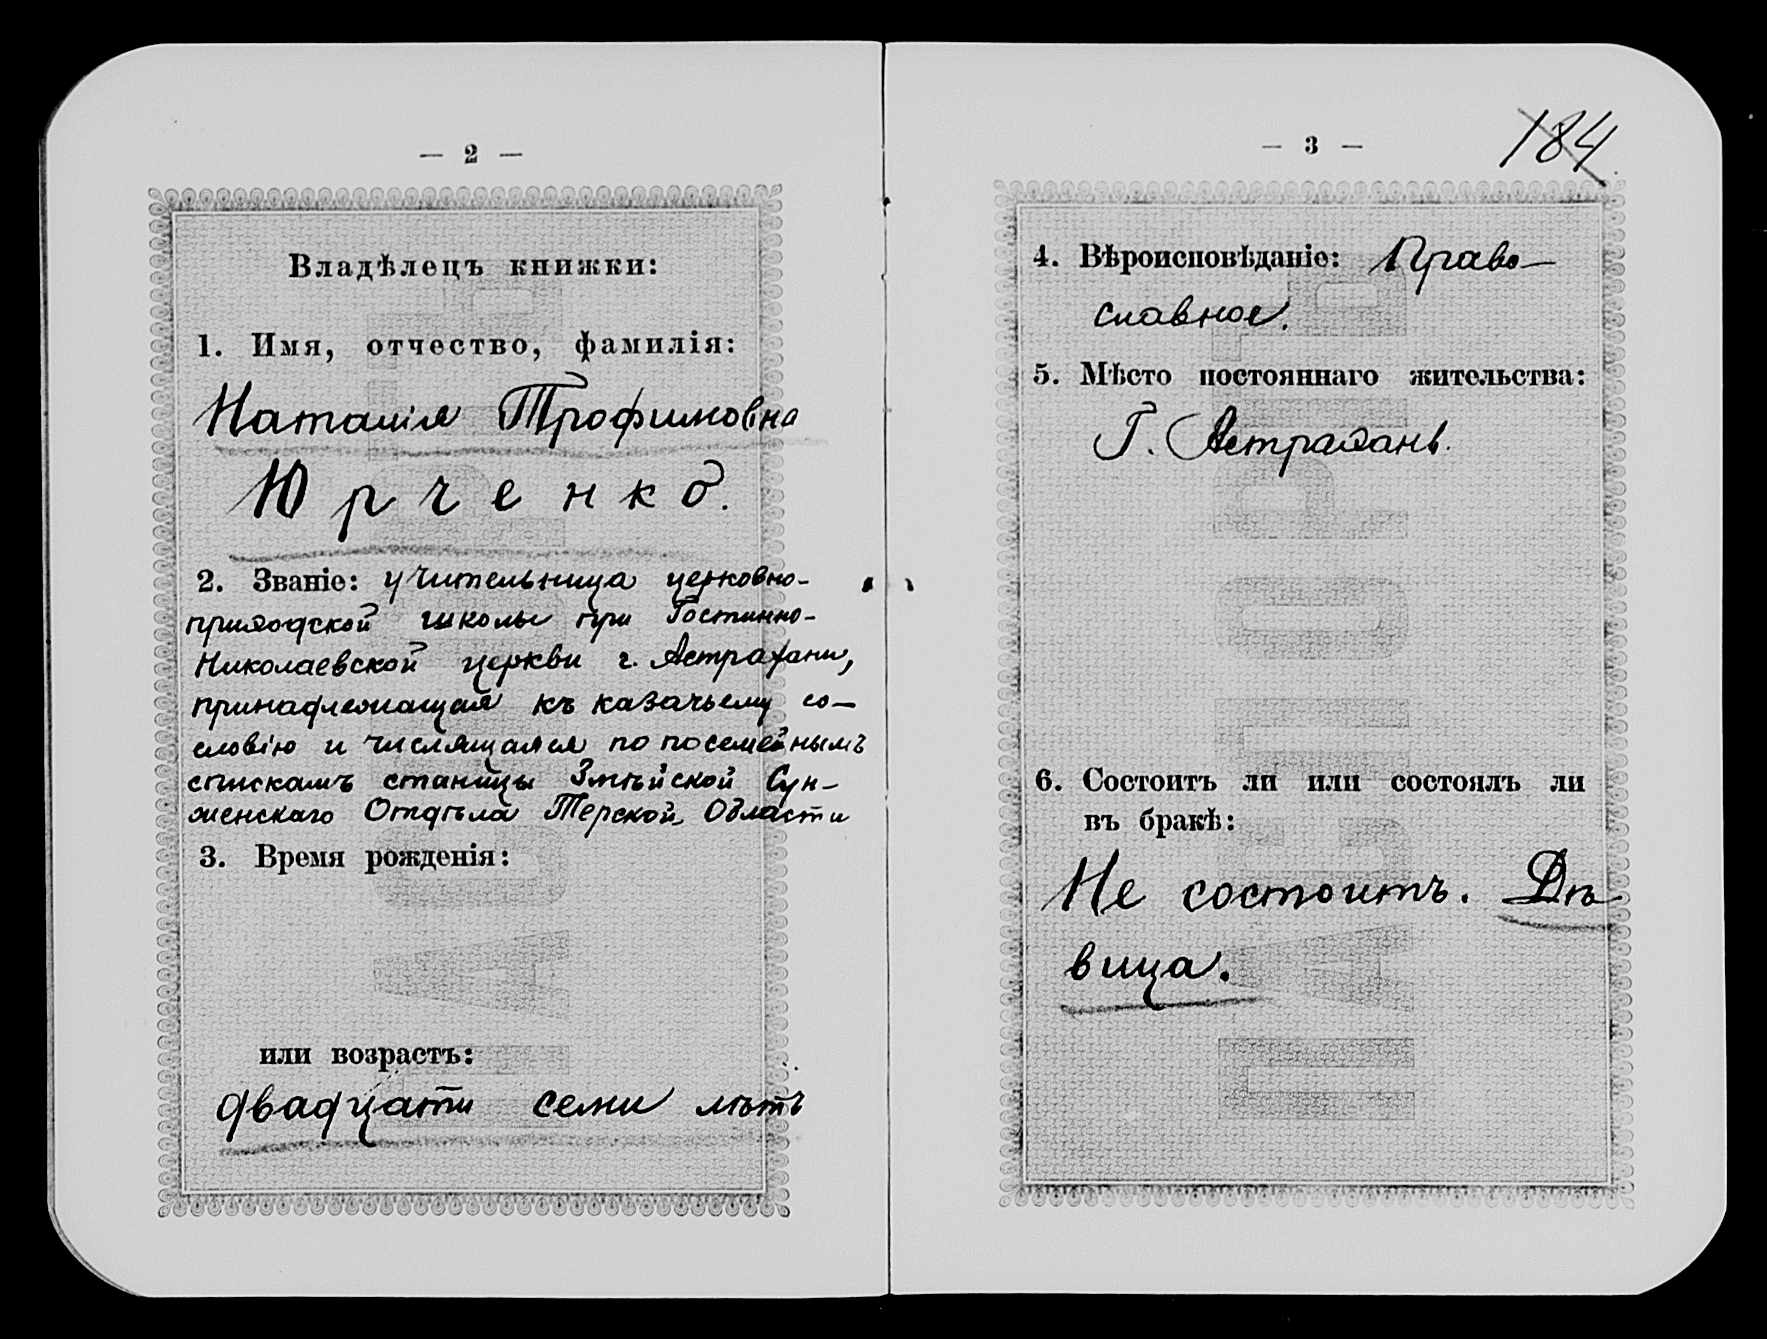 — 2 —
Владѣлецъ книжки:
1. Имя, отчество, фамилія:
Наталія Трофимовна
Юрченко.
2. Званіе: учительница церковно-
приходской школы при Гостинно-
Николаевской церкви г. Астрахани,
принадлежащая къ казачьему со-
словію и числящаяся по посемейнымъ
спискамъ станицы Змѣйской Сун-
женскаго Отдѣла Терской Области
3. Время рожденія:
или возрастъ:
двадцати семи лѣтъ
— 3 —
184
4. Вѣроисповѣданіе: Право-
славное.
5. Мѣсто постояннаго жительства:
Г. Астрахань.
6. Состоитъ ли или состоялъ ли
въ бракѣ:
Не состоитъ. Дѣ
вица.